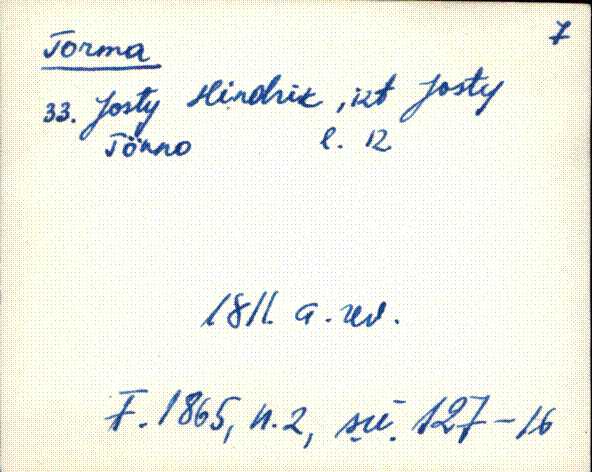 7
Torma
33. Josty Hindrik, ist Josty
Tönno l. 12
1811. a. rev.
F. 1865, n. 2, sü. 127-16